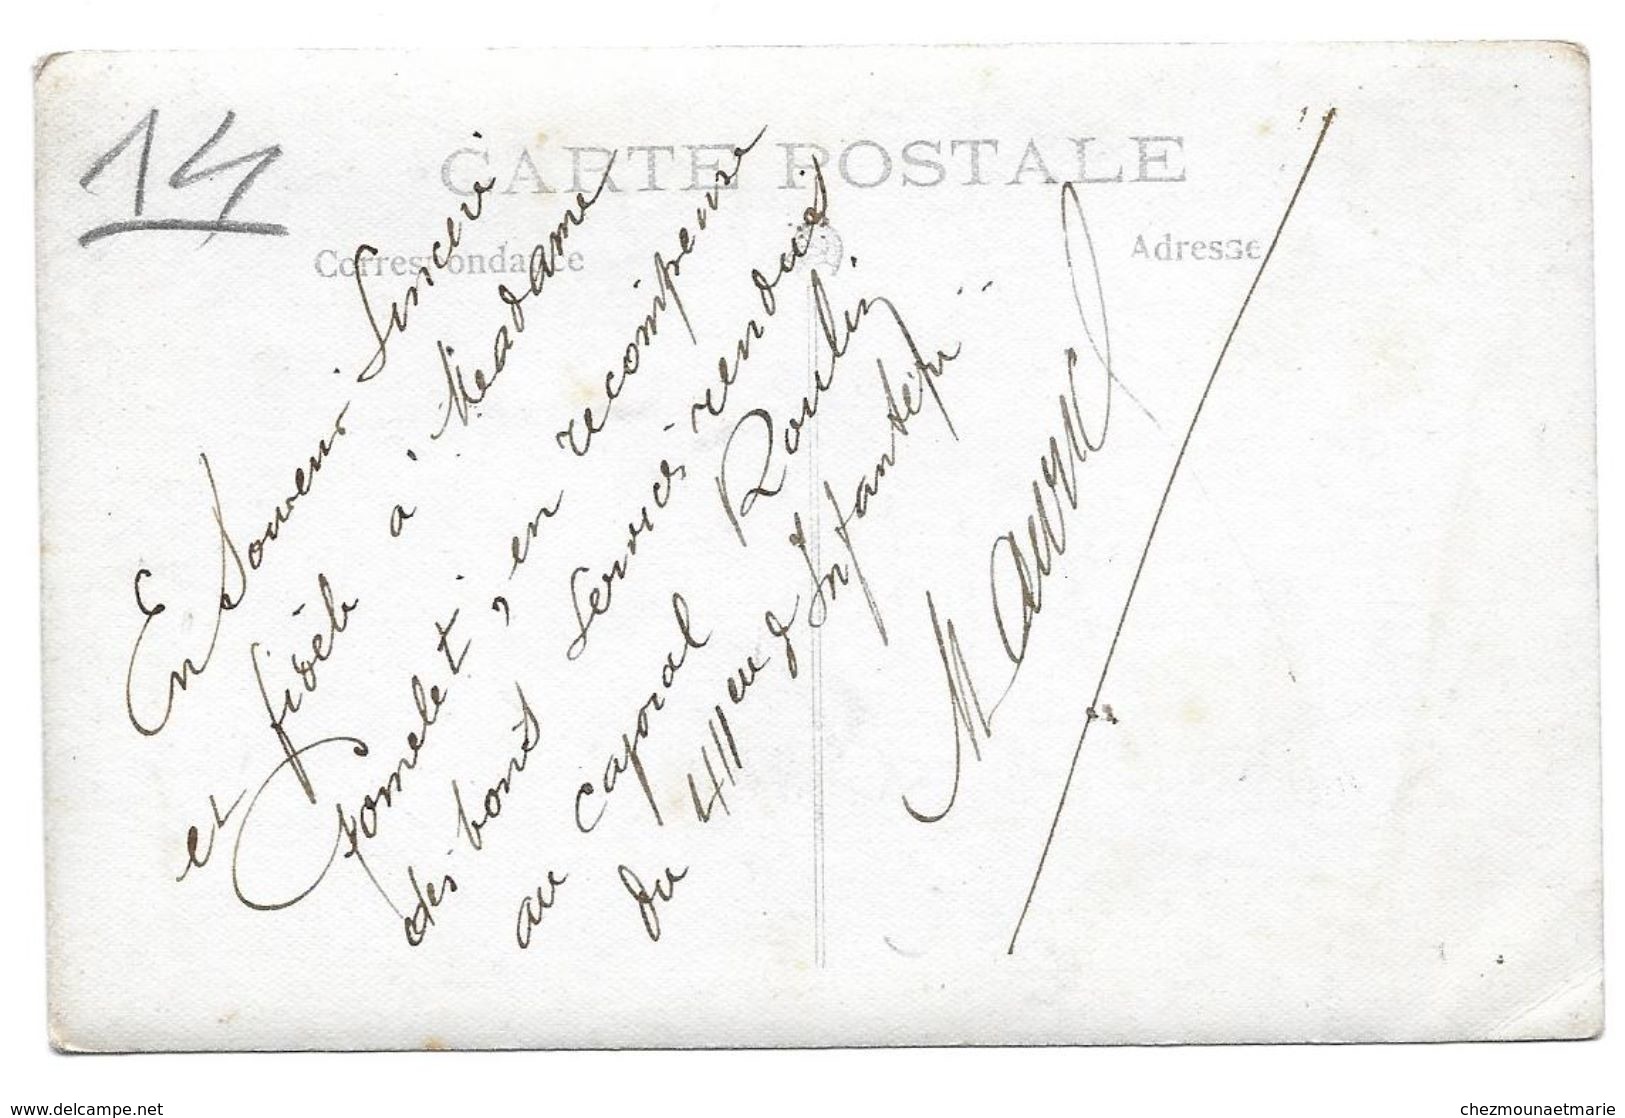 14
CARTE POSTALE
Correspondance
Adresse
En Souvenir Sincère
et fidèle à Madame
Gomelet, en récompense
des bons Services rendus
au caporal Roulin
du 411eme d'Infanterie
www.delcampe.net
chezmounaetmarie